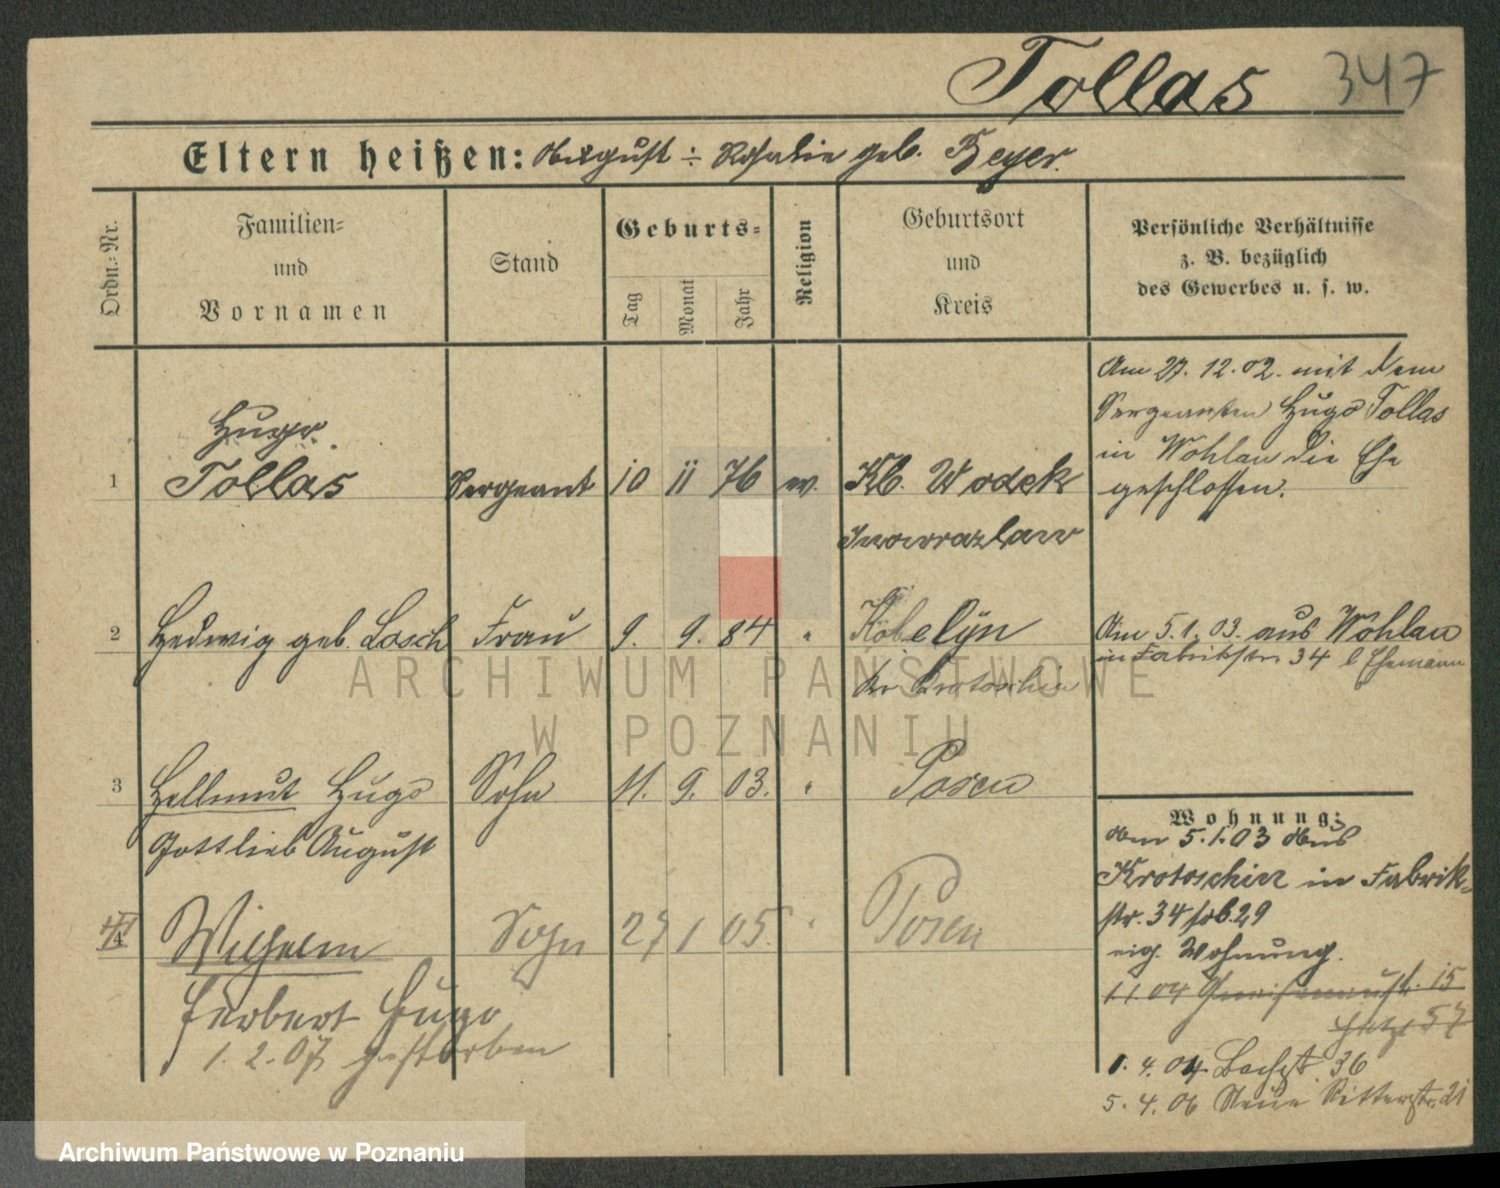 Tollas 347
Eltern heißen: August ÷ Rosalie geb. Beyer.
Ordn.-Nr.
Familien-
und
Vornamen
Stand
Geburts-
Tag
Monat
Jahr
Religion
Geburtsort
und
Kreis
Persönliche Verhältnisse
z. B. bezüglich
des Gewerbes u. s. w.
Hugo
1 Tollas Sergeant 10 11 76 ev. Kl. Wodek
Inowrazlaw
Am 27.12.02. mit dem
Sergeanten Hugo Tollas
in Wohlau die Ehe
geschlossen.
2 Hedwig geb. Losch Frau 9. 9. 84 " Kobelÿn
Kr Krotoschin
Am 5.1.03. aus Wohlau
in Fabrikstr. 34 b Ehemann
3 Hellmut Hugo Sohn 11. 9. 03. " Posen
Gottlieb August
4 Wilhelm Sohn 27 1 05. " Posen
Herbert Hugo
1.2.07 gestorben
Wohnung:
Am 5.1.03 aus
Krotoschin in Fabrik-
str. 34
eig. Wohnung.
1 1 04 Gneisenaustr. 15
57
1.4.04 Bachstr 36
5.4.06 Neue Ritterstr. 21
ARCHIWUM PAŃSTWOWE
W POZNANIU
Archiwum Państwowe w Poznaniu